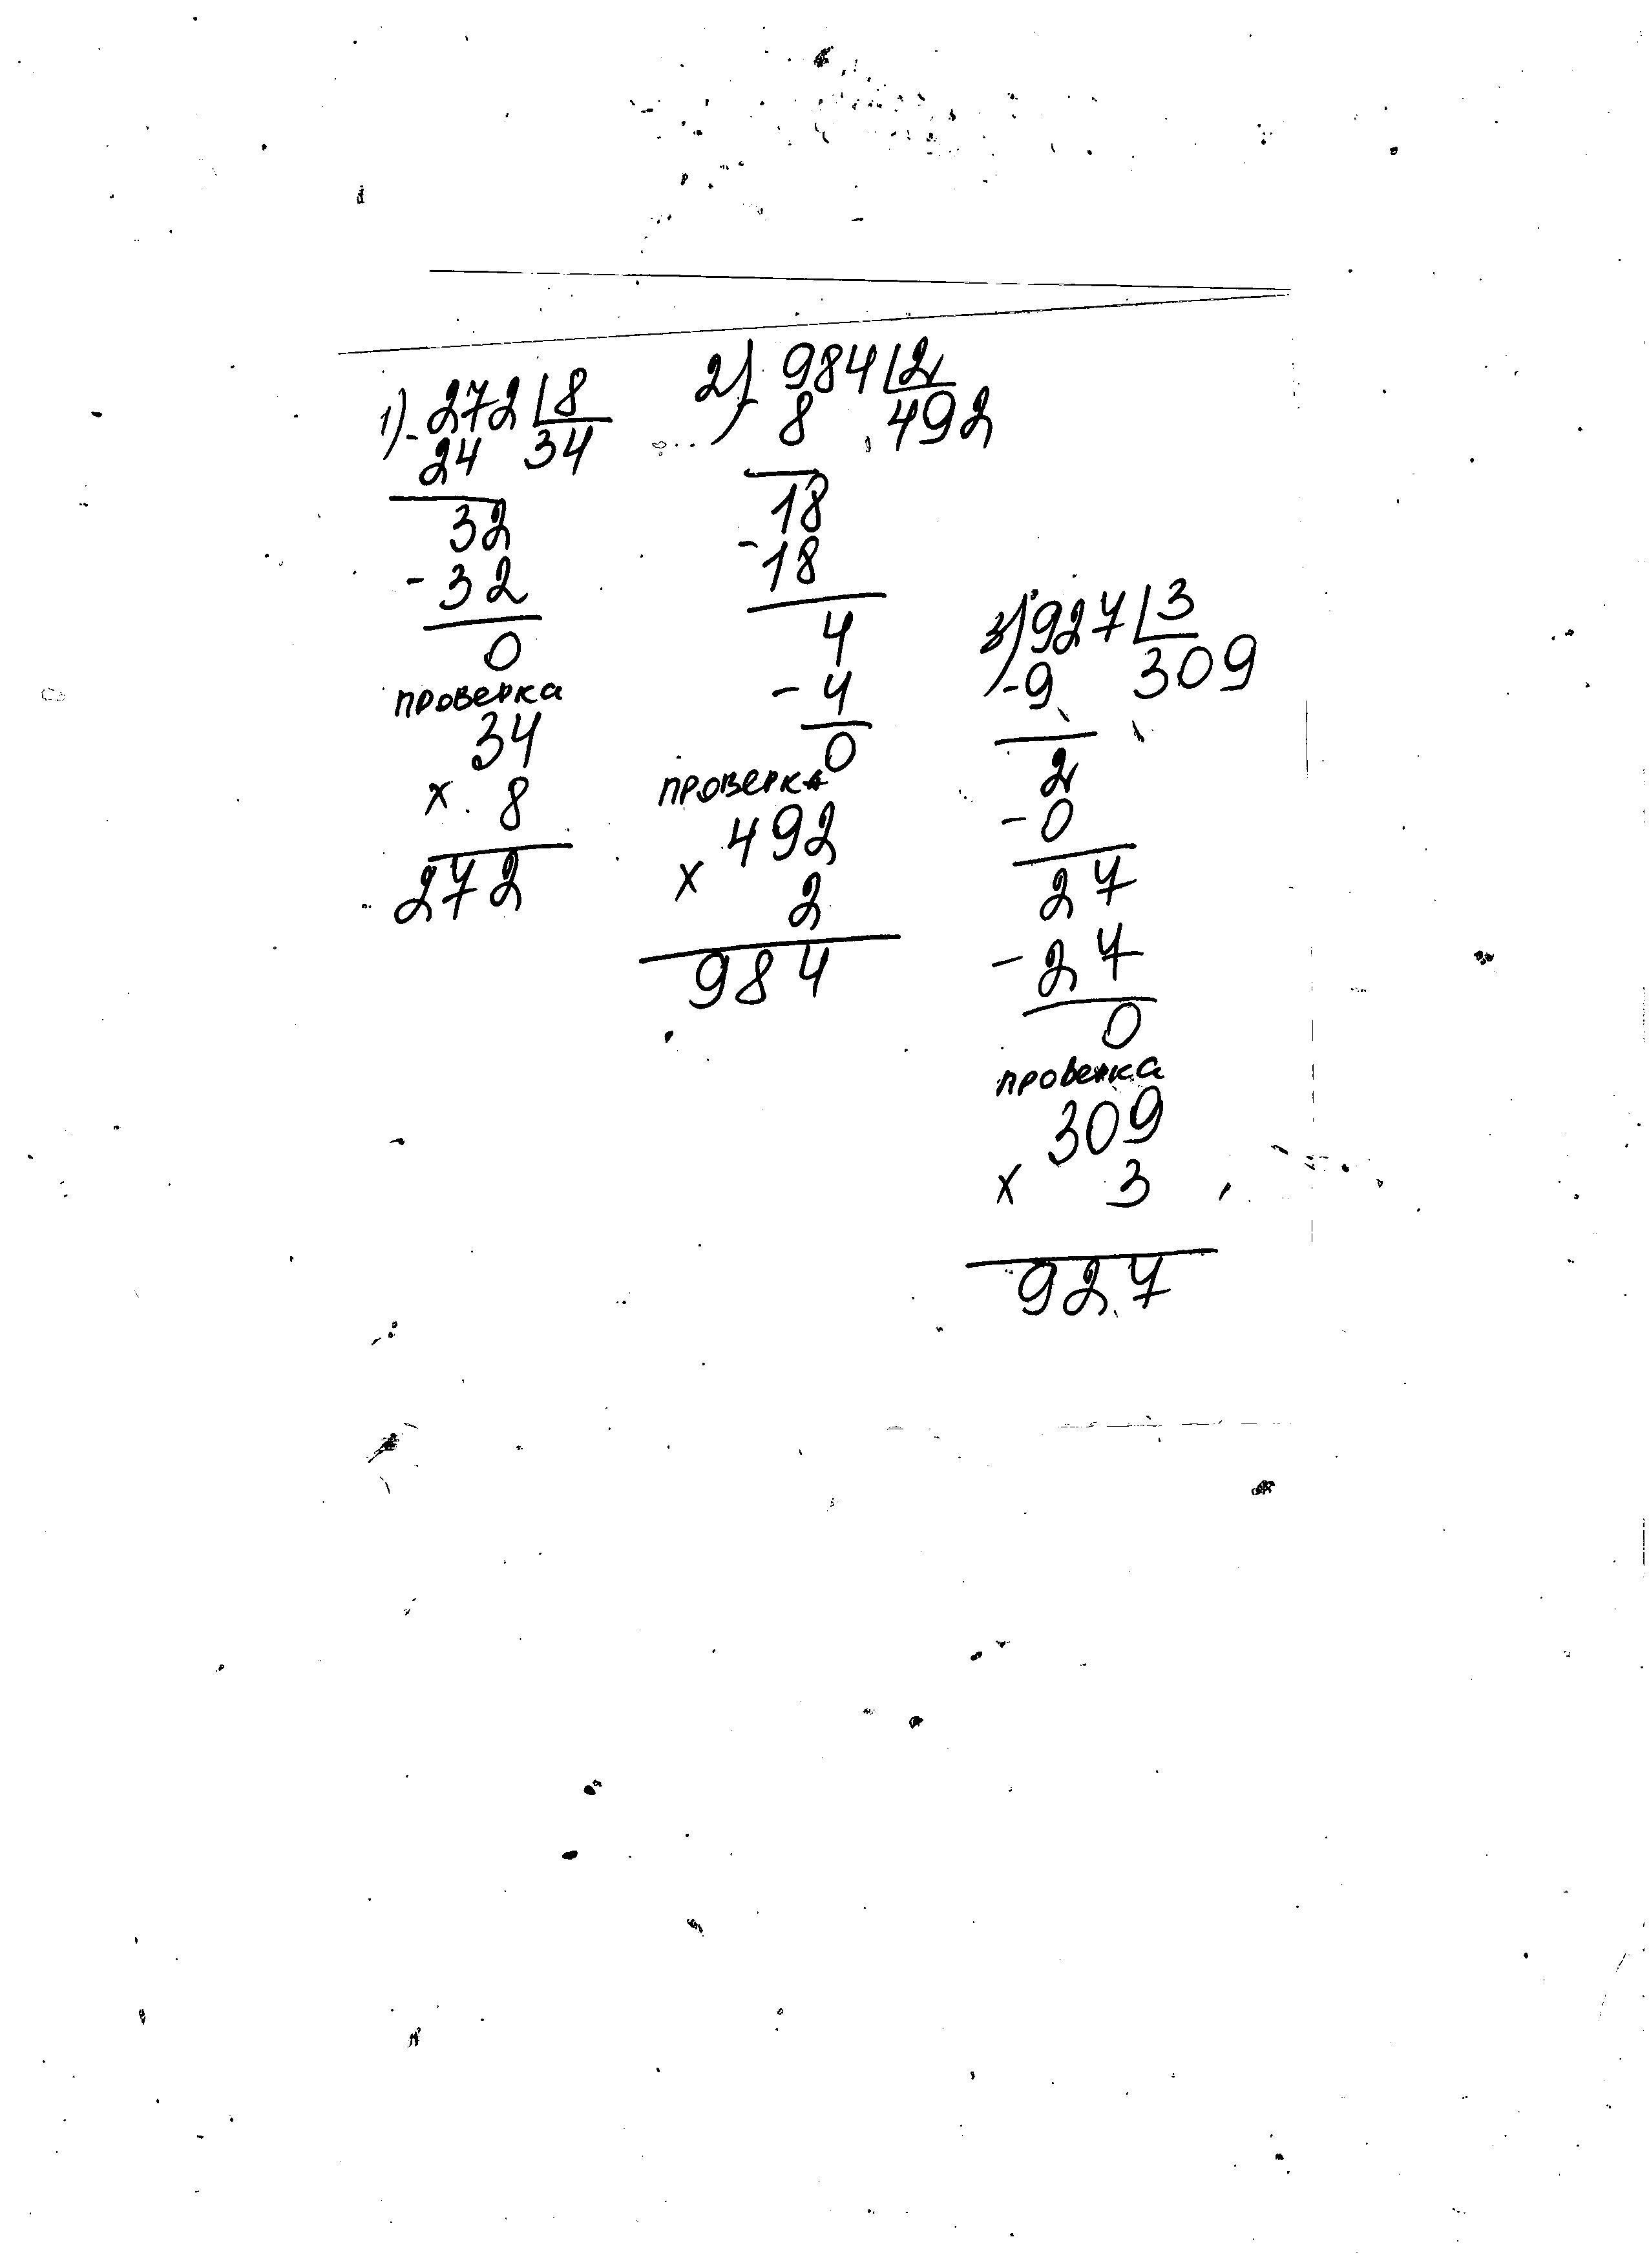 1) - 272 | 8
24 34
32
- 32
0
проверка
34
x 8
272
2) - 984 | 2
8 492
18
- 18
4
- 4
0
проверка
492
x 2
984
3) 927 | 3
- 9 309
2
- 0
27
- 27
0
проверка
309
x 3
927